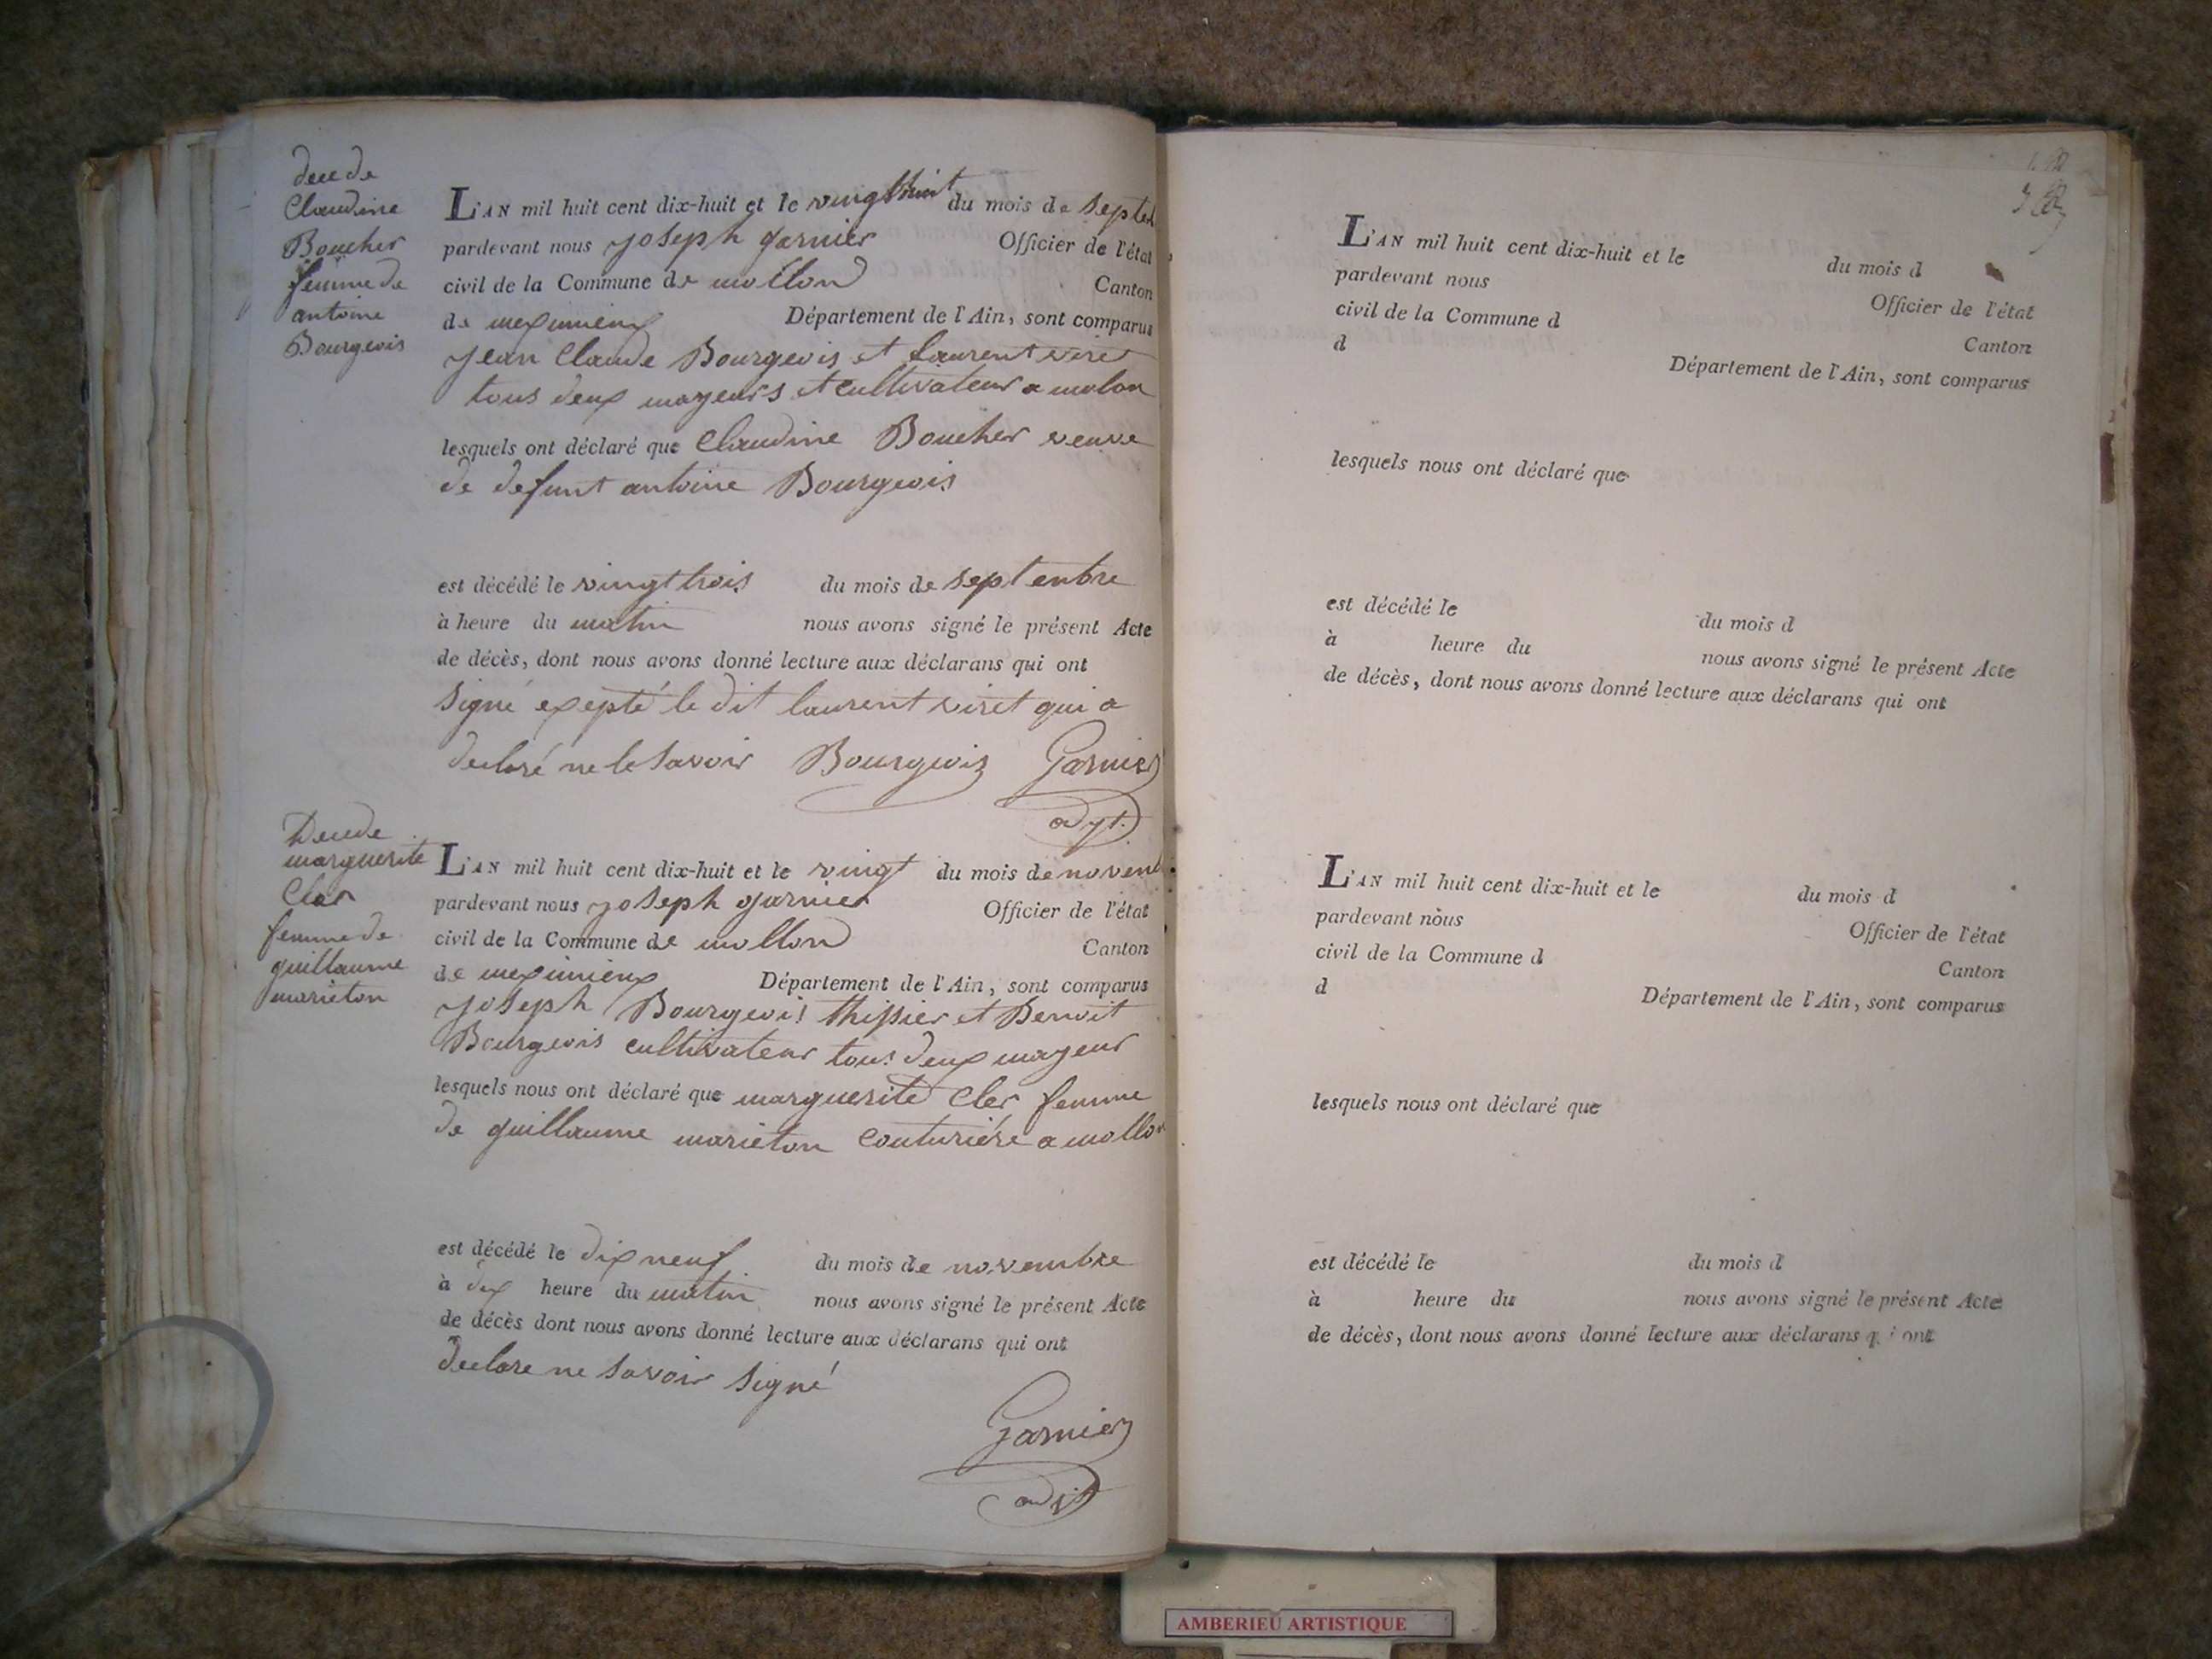 de
Claudine
Boucher
femme de
antoine
Bourgeois
L'AN mil huit cent dix-huit et le vingt huit du mois de septe
pardevant nous joseph garnier Officier de l'état
civil de la Commune de mollon Canton
de meximieux Département de l'Ain, sont comparus
jean Claude Bourgeois et laurent viret
tous deux mayeurs et cultivateur a molon
lesquels ont déclaré que Claudine Boucher veuve
de defunt antoine Bourgeois
est décédé le vingt trois du mois de septenbre
à heure du matin nous avons signé le présent Acte
de décès, dont nous avons donné lecture aux déclarans qui ont
signé expepté le dit laurent viret qui a
declaré ne le savoir Bourgeois Garnier
adjt.
marguerite
Cler
femme de
guillaume
marieton
L'AN mil huit cent dix-huit et le vingt du mois de novem
pardevant nous joseph garnier Officier de l'état
civil de la Commune de mollon Canton
de meximieux Département de l'Ain, sont comparus
joseph Bourgeois thissier et Benoit
Bourgeois cultivateur tous deux mayeur
lesquels nous ont déclaré que marguerite Cler femme
de guillaume marieton couturiére a mollon
est décédé le dix neuf du mois de novembre
à dix heure du matin nous avons signé le présent Acte
de décès dont nous avons donné lecture aux déclarans qui ont
declare ne savoir signé
Garnier
adjt
L'AN mil huit cent dix-huit et le du mois d
pardevant nous Officier de l'état
civil de la Commune d Canton
d Département de l'Ain, sont comparus
lesquels nous ont déclaré que
est décédé le du mois d
à heure du nous avons signé le présent Acte
de décès, dont nous avons donné lecture aux déclarans qui ont
L'AN mil huit cent dix-huit et le du mois d
pardevant nous Officier de l'état
civil de la Commune d Canton
d Département de l'Ain, sont comparus
lesquels nous ont déclaré que
est décédé le du mois d
à heure du nous avons signé le présent Acte
de décès, dont nous avons donné lecture aux déclarans qui ont
AMBERIEU ARTISTIQUE